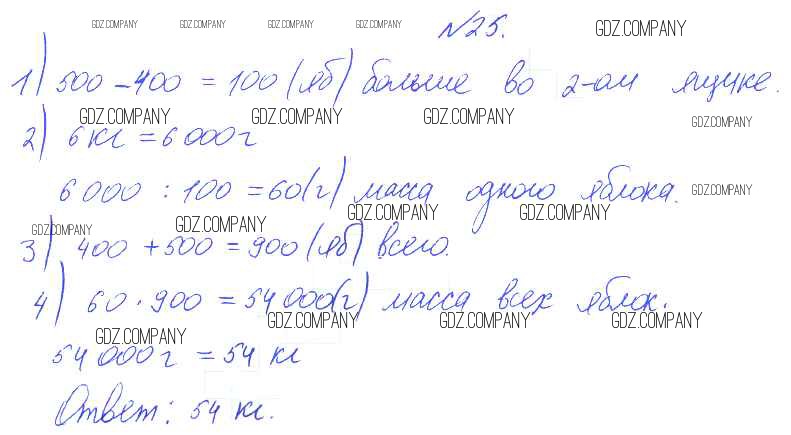 GDZ.COMPANY GDZ.COMPANY GDZ.COMPANY GDZ.COMPANY №25. GDZ.COMPANY
1) 500 - 400 = 100 (яб) больше во 2-ом ящике.
GDZ.COMPANY GDZ.COMPANY GDZ.COMPANY GDZ.COMPANY
2) 6 кг = 6 000 г
6 000 : 100 = 60 (г) масса одного яблока. GDZ.COMPANY
GDZ.COMPANY GDZ.COMPANY GDZ.COMPANY GDZ.COMPANY
3) 400 + 500 = 900 (яб) всего.
4) 60 · 900 = 54 000 (г) масса всех яблок.
GDZ.COMPANY GDZ.COMPANY GDZ.COMPANY GDZ.COMPANY
54 000 г = 54 кг
Ответ: 54 кг.